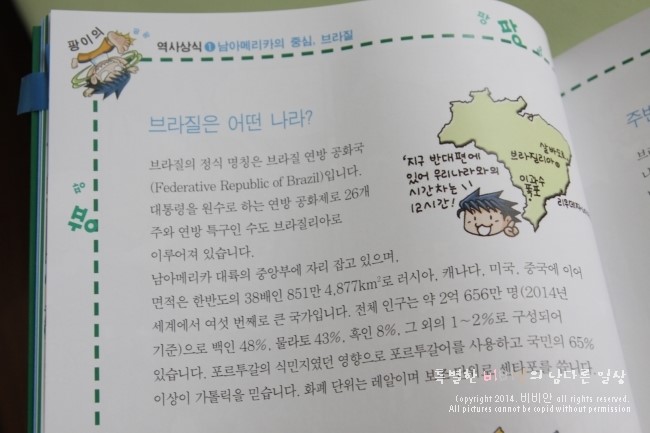 팡이의
역사상식 ❶ 남아메리카의 중심, 브라질
팡
팡
팡
팡
브라질은 어떤 나라?
브라질의 정식 명칭은 브라질 연방 공화국
(Federative Republic of Brazil)입니다.
대통령을 원수로 하는 연방 공화제로 26개
주와 연방 특구인 수도 브라질리아로
이루어져 있습니다.
남아메리카 대륙의 중앙부에 자리 잡고 있으며,
면적은 한반도의 38배인 851만 4,877km²로 러시아, 캐나다, 미국, 중국에 이어
세계에서 여섯 번째로 큰 국가입니다. 전체 인구는 약 2억 656만 명(2014년
기준)으로 백인 48%, 물라토 43%, 흑인 8%, 그 외의 1~2%로 구성되어
있습니다. 포르투갈의 식민지였던 영향으로 포르투갈어를 사용하고 국민의 65%
이상이 가톨릭을 믿습니다. 화폐 단위는 레알이며
'지구 반대편에
있어 우리나라와의
시간차는
12시간!
살바도르
브라질리아
이과수
폭포
주변
특별한 비 의 남다른 일상
Copyright 2014. 비비안 all rights reserved.
All pictures cannot be copid without permission